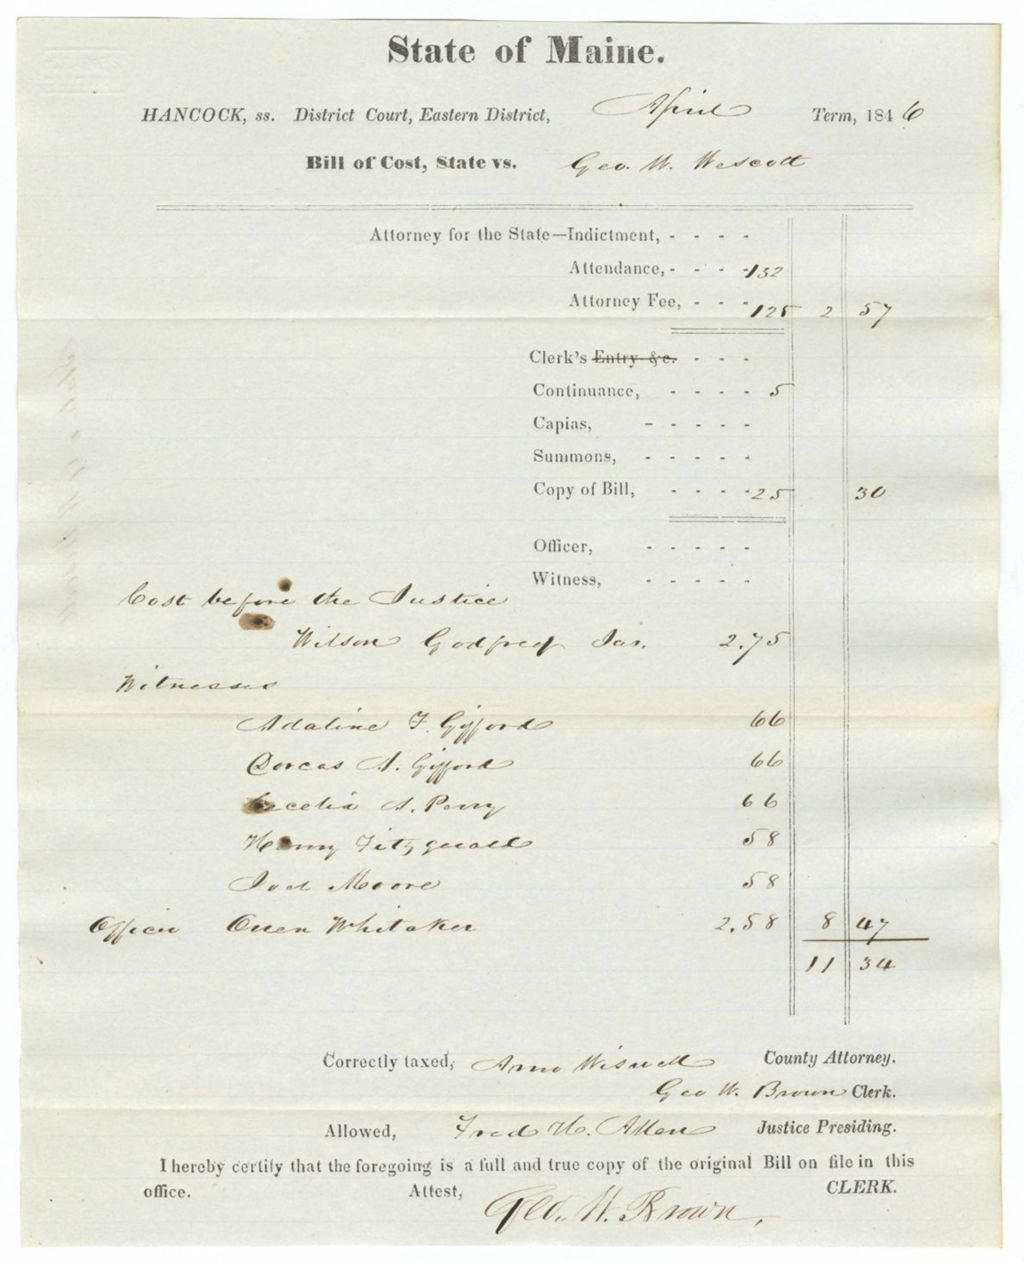 State of Maine.
HANCOCK, ss. District Court, Eastern District, April Term, 1846
Bill of Cost, State vs. Geo. W. Wescott
Attorney for the State—Indictment, - - - -
Attendance, - - - - 132
Attorney Fee, - - - 125 2 57
Clerk's Entry &c. - - -
Continuance, - - - - 5
Capias, - - - - -
Summons, - - - - -
Copy of Bill, - - - - 25 30
Officer, - - - - -
Witness, - - - - -
Cost before the Justice
Wilson Godfrey Jus. 2.75
Witnesses
Adaline F. Gifford 66
Dorcas A. Gifford 66
Cecelia A. Perry 66
Henry Fitzgerald 58
Joel Moore 58
Officer Oren Whitaker 2.58 8 47
11 34
Correctly taxed, Arno Wiswell County Attorney.
Geo W. Brown Clerk.
Allowed, Fred H. Allen Justice Presiding.
I hereby certify that the foregoing is a full and true copy of the original Bill on file in this
office. Attest, CLERK.
Geo. W. Brown,